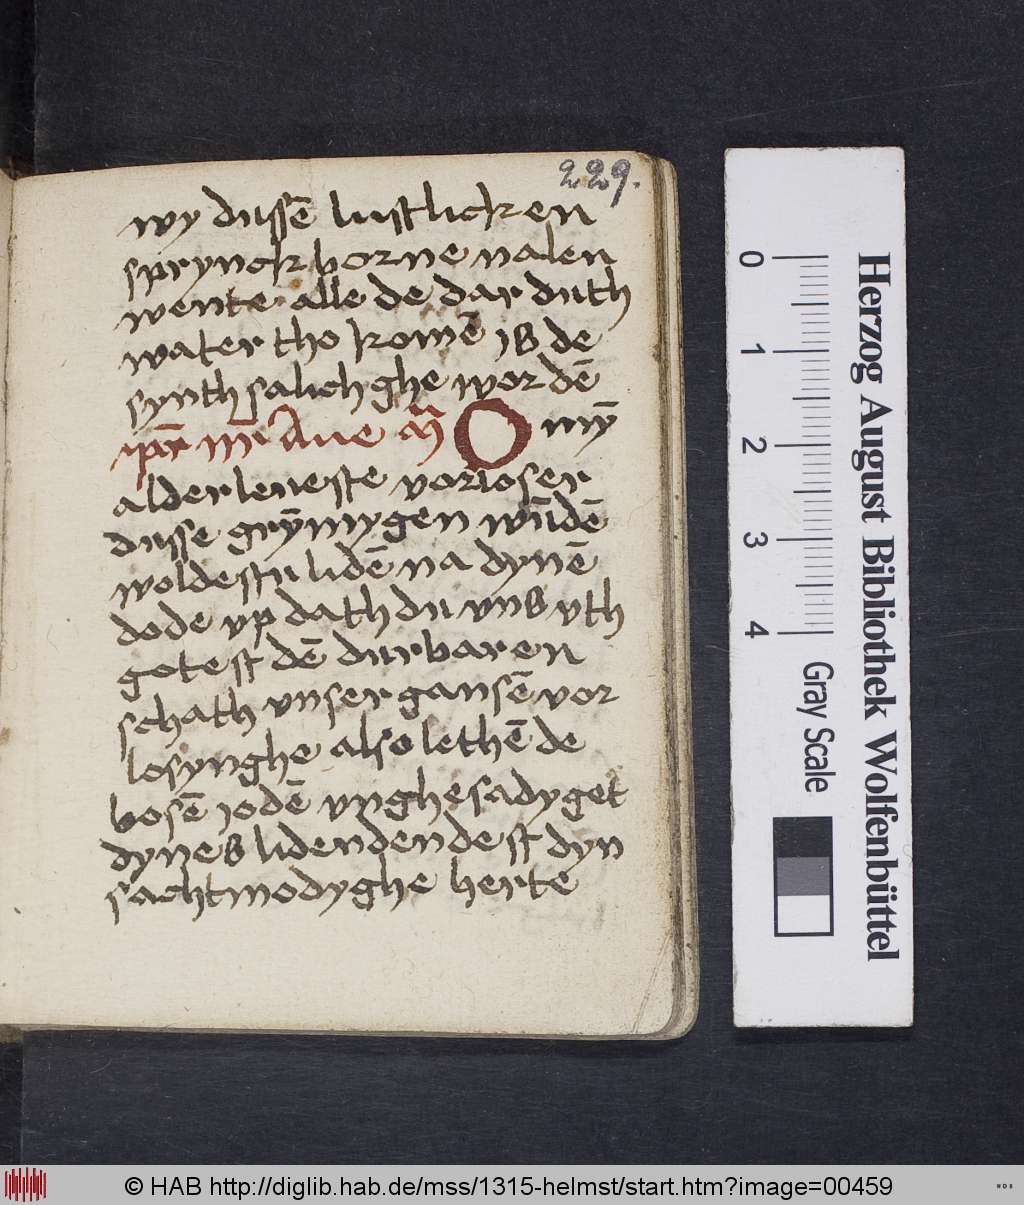 229.
wy dussē lustlicken
spryngk borne nalen
wente alle de dar duth
water tho komē is de
synth salich ghe wor dē
pr nr Aue M O mȳ
alderleueste vorloser
dusse grȳmygen wūdē
woldestu lidē na dynē
dode vp dath du vns vth
gotest dē durbaren
schath vnser gansē vor
losynghe also lethē de
bosē jodē vnghesadyget
dynes lidenden dest dyn
sachtmodyghe herte
0
1
2
3
4
Gray Scale
Herzog August Bibliothek Wolfenbüttel
© HAB http://diglib.hab.de/mss/1315-helmst/start.htm?image=00459